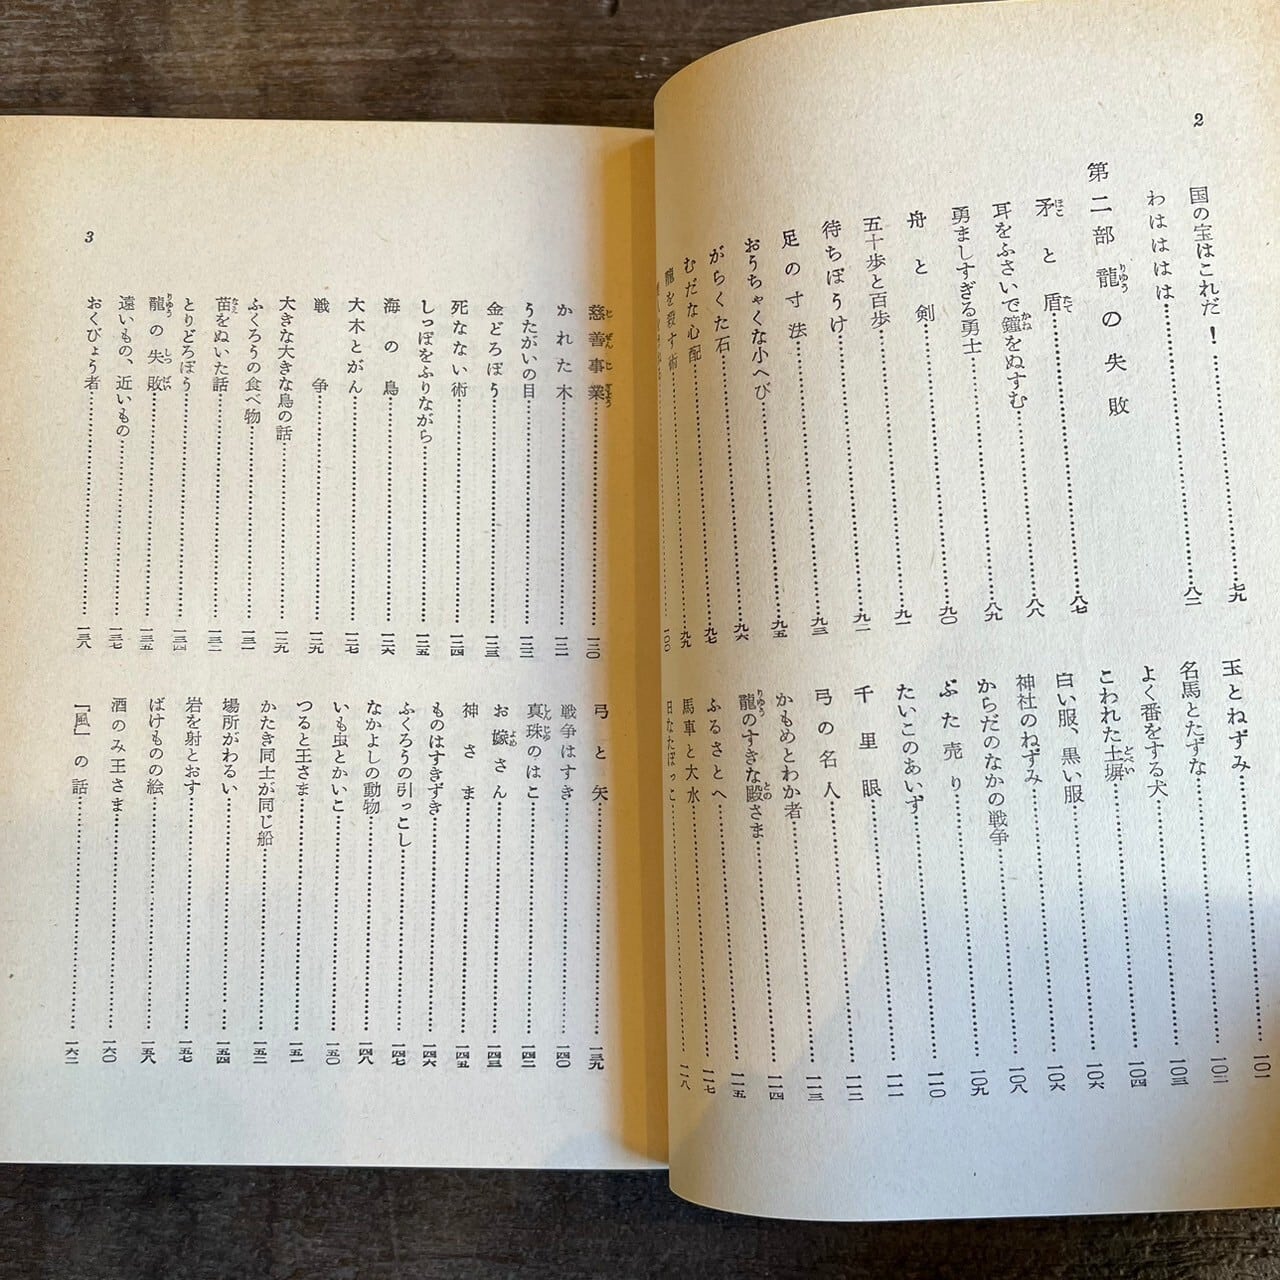 2
国の宝はこれだ！……七九
わはははは……八二
第二部 龍の失敗
矛と盾……八七
耳をふさいで鐘をぬすむ……八八
勇ましすぎる勇士……八九
舟と剣……九〇
五十歩と百歩……九一
待ちぼうけ……九二
足の寸法……九三
おうちゃくな小へび……九五
がらくた石……九六
むだな心配……九七
龍を殺す術……九九
一〇〇
玉とねずみ……一〇一
名馬とたずな……一〇二
よく番をする犬……一〇三
こわれた土塀……一〇四
白い服、黒い服……一〇六
神社のねずみ……一〇六
からだのなかの戦争……一〇八
ぶた売り……一〇九
たいこのあいず……一一〇
千里眼……一一一
弓の名人……一一二
かもめとわか者……一一三
龍のすきな殿さま……一一四
ふるさとへ……一一五
馬車と大水……一一七
日なたぼっこ……一一八
3
慈善事業……一二〇
かれた木……一二一
うたがいの目……一二二
金どろぼう……一二三
死なない術……一二四
しっぽをふりながら……一二五
海の鳥……一二六
大木とがん……一二七
戦争……一二九
大きな大きな鳥の話……一二九
ふくろうの食べ物……一三一
苗をぬいた話……一三二
とりどろぼう……一三四
龍の失敗……一三五
遠いもの、近いもの……一三七
おくびょう者……一三八
弓と矢……一三九
戦争はすき……一四〇
真珠のはこ……一四二
お嫁さん……一四三
神さま……一四五
ものはすきずき……一四六
ふくろうの引っこし……一四七
なかよしの動物……一四八
いも虫とかいこ……一五〇
つると王さま……一五一
かたき同士が同じ船……一五二
場所がわるい……一五四
岩を射とおす……一五七
ばけものの絵……一五八
酒のみ王さま……一六〇
「風」の話……一六二